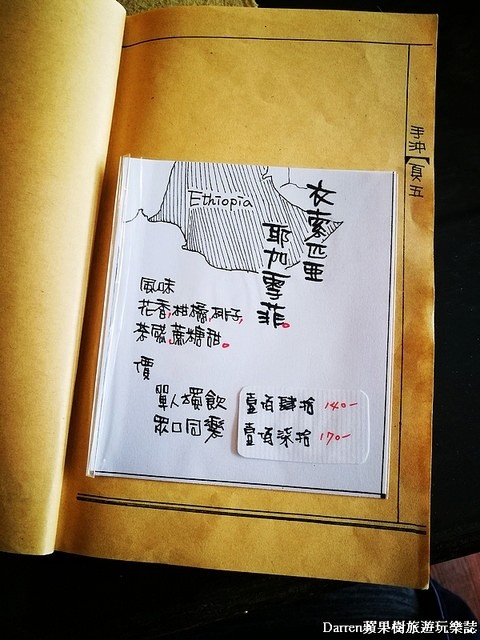 手沖【頁五
Ethiopia
衣索匹亞
耶加雪菲。
風味
花香,柑橘,桃子,
茶感,蔗糖甜。
價
單人獨飲 壹佰肆拾 140-
眾口同饗 壹佰柒拾 170-
Darren蘋果樹旅遊玩樂誌